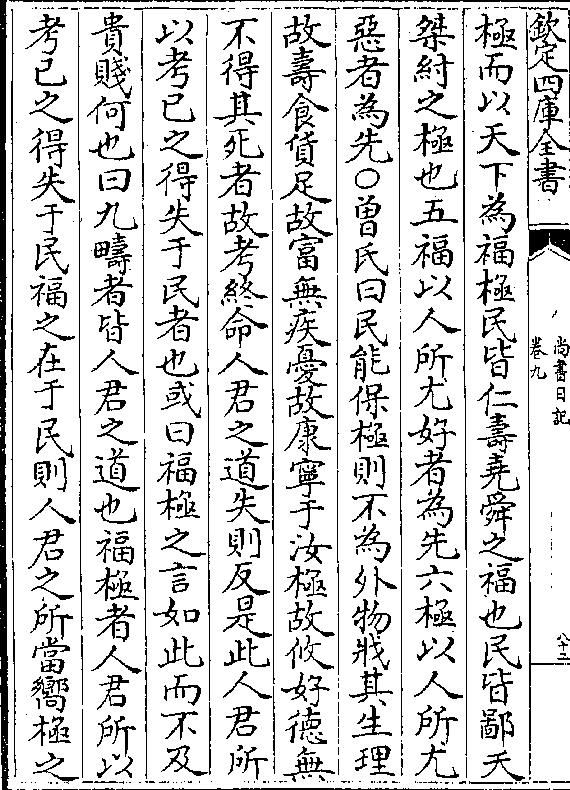 欽定四庫全書
尚書日記
卷九
八十三
極而以天下為福極民皆仁壽堯舜之福也民皆鄙夭
桀紂之極也五福以人所尤好者為先六極以人所尤
惡者為先○曽氏曰民能保極則不為外物戕其生理
故壽食貨足故富無疾憂故康寧于汝極故攸好德無
不得其死者故考終命人君之道失則反是此人君所
以考已之得失于民者也或曰福極之言如此而不及
貴賤何也曰九疇者皆人君之道也福極者人君所以
考已之得失于民福之在于民則人君之所當嚮極之